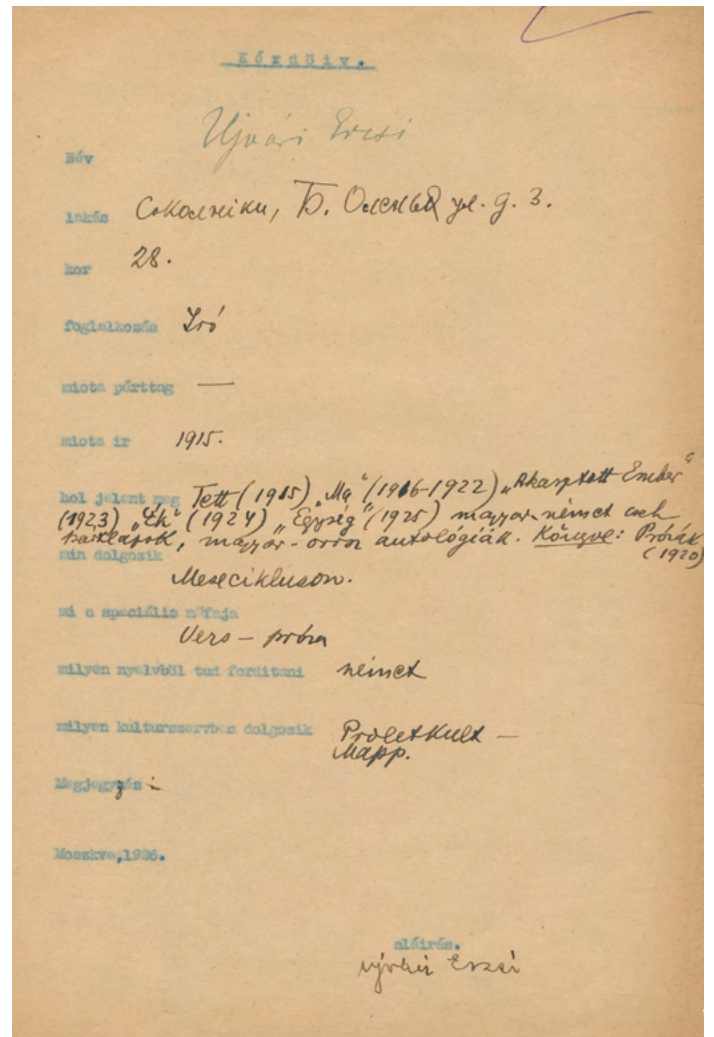 Kérdőiv.
Ujvári Erzsi
Név
lakás Сокольники, Б. Оленья ул. д. 3.
kor 28.
foglalkozás Iró
miota párttag —
miota ir 1915.
hol jelent meg Tett (1915) „Ma“ (1916-1922) „Akasztott Ember“
(1923) „Ék“ (1924) „Egység“ (1925) magyar-német cseh
pártlapok, magyar-orosz antológiák. Könyve: Prózák
(1920)
min dolgozik
Mesecikluson.
mi a speciális műfaja
Vers – próza
milyen nyelvből tud forditani német
milyen kulturszervben dolgozik Proletkult —
Mapp.
Megjegyzés :
Moszkva,1926.
aláirás.
Ujvári Erzsi